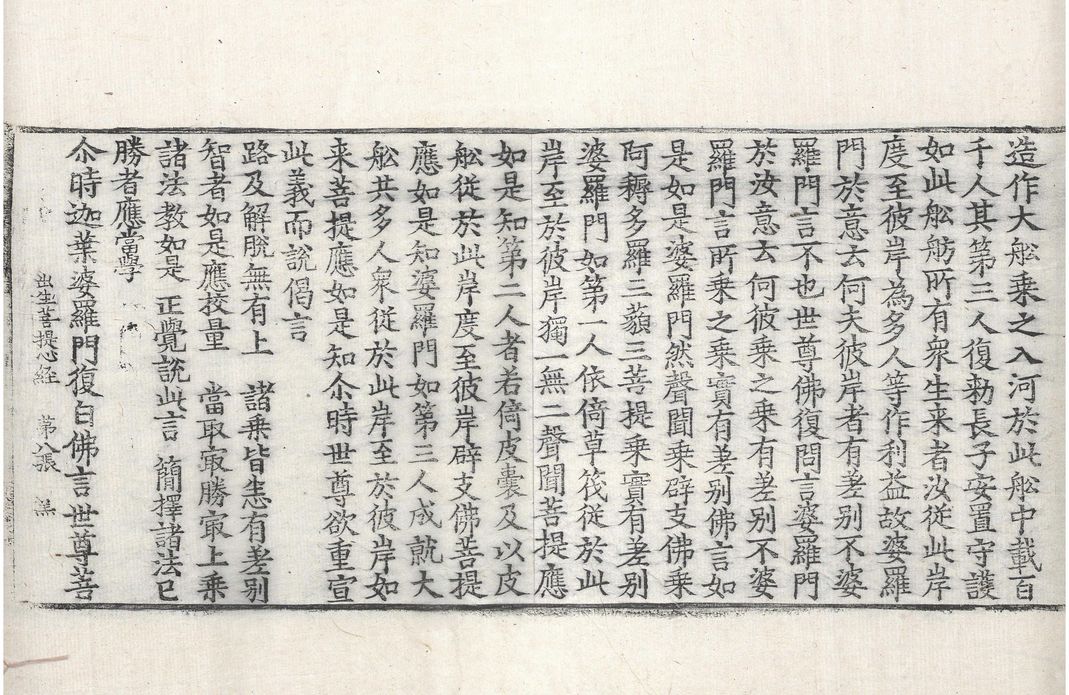 造作大舩乗之入河於此舩中載百
千人其第三人復勑長子安置守護
如此舩舫所有衆生来者汝従此岸
度至彼岸為多人等作利益故婆羅
門於意去何夫彼岸者有差别不婆
羅門言不也世尊佛復問言婆羅門
於汝意去何彼乗之乗有差别不婆
羅門言所乗之乗實有差别佛言如
是如是婆羅門然聲聞乗辟支佛乗
阿耨多羅三藐三菩提乗實有差别
婆羅門如第一人依倚草筏従於此
岸至於彼岸獨一無二聲聞菩提應
如是知第二人者若倚皮囊及以皮
舩従於此岸度至彼岸辟支佛菩提
應如是知婆羅門如第三人成就大
舩共多人衆従於此岸至於彼岸如
来菩提應如是知尒時世尊欲重宣
此義而說偈言
路及解脫無有上　諸乗皆悉有差别
智者如是應挍量　當取㝡勝㝡上乗
諸法教如是　正覺說此言　簡擇諸法已
勝者應當學
尒時迦葉婆羅門復白佛言世尊菩
出生菩提心経　第八張　羔